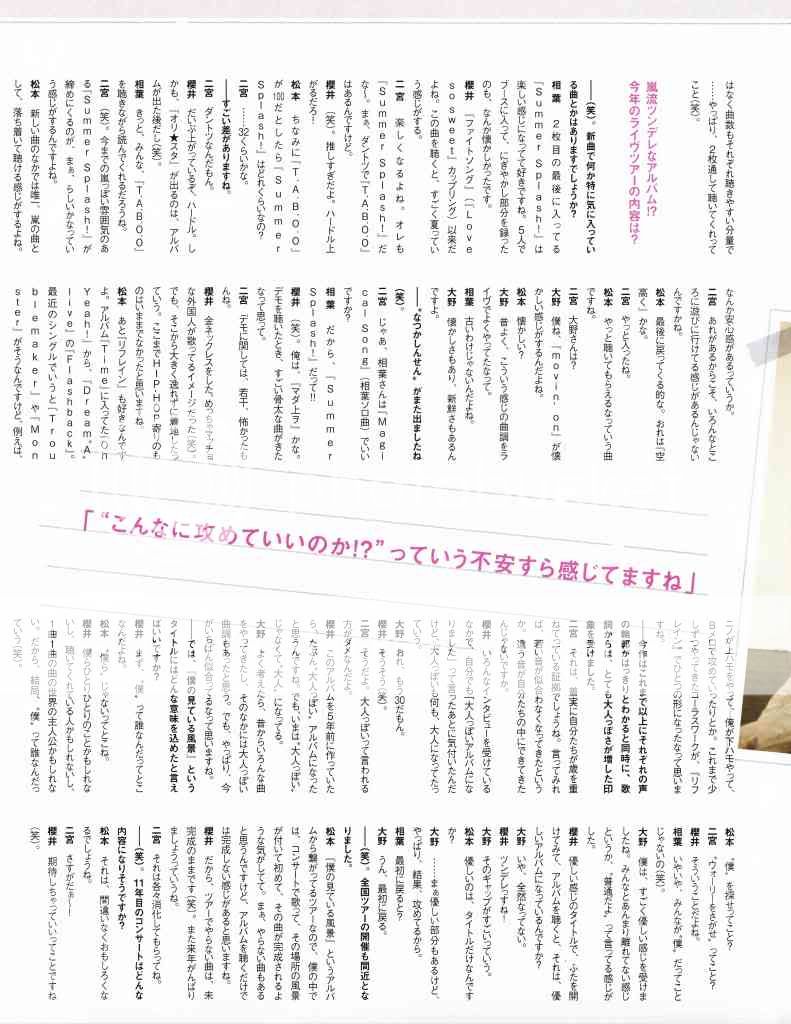 はなく曲数もそれぞれ聴きやすい分量で
……やっぱり、2枚通して聴いてくれって
こと(笑)。
嵐流ツンデレなアルバム!?
今年のライヴツアーの内容は?
――(笑)。新曲で何か特に気に入ってい
る曲とかはありますでしょうか?
相葉 2枚目の最後に入ってる
「Summer Splash!」は
楽しい感じになってて好きですね。5人で
ブースに入って、にぎやかし部分を録った
のも、なんか懐かしかったです。
櫻井 「ファイトソング」(「Love
so sweet」カップリング)以来だ
よね。この曲を聴くと、すごく夏ってい
う感じがする。
二宮 楽しくなるよね。オレも
「Summer Splash!」だ
な~。まぁ、ダントツで「T・A・B・O・O」
はあるんですけど。
櫻井 (笑)。推しすぎだよ。ハードル上
がるだろ!
松本 ちなみに「T・A・B・O・O」
が100だとしたら「Summer
Splash!」はどれくらいなの?
二宮 ……32くらいかな。
――すごい差がありますね。
二宮 ダントツなんだもん。
櫻井 だいぶ上がっているぞ、ハードル。し
かも、『オリ★スタ』が出るのは、アルバ
ムが出た後だし(笑)。
相葉 きっと、みんな、「T・A・B・O・O」
を聴きながら読んでくれるだろうね。
二宮 (笑)。今までの嵐っぽい雰囲気のあ
る「Summer Splash!」が
締めにくるのが、まぁ、らしいかなってい
う感じがするんですよね。
松本 新しい曲のなかでは唯一、嵐の曲と
して、落ち着いて聴ける感じがするよね。
なんか安心感があるっていうか。
二宮 あれがあるからこそ、いろんなとこ
ろに遊びに行けてる感じがあるんじゃない
んですかね。
松本 最後に戻ってくる的な。おれは「空
高く」かな。
二宮 やっと入ったね。
松本 やっと聴いてもらえるなっていう曲
ですね。
二宮 大野さんは?
大野 僕ね、「movin' on」が懐
かしい感じがするんだよね。
松本 懐かしい?
大野 昔よく、こういう感じの曲調をラ
イヴでよくやってたなって。
相葉 古いわけじゃないんだよね。
大野 懐かしさもあり、新鮮さもあるん
ですよ。
――"なつかしんせん"がまた出ましたね
(笑)。
二宮 じゃあ、相葉さんは「Magi
cal Song」(相葉ソロ曲)でいい
ですか?
相葉 だから、「Summer
Splash!」だって!!
櫻井 (笑)。俺は、「マダ上ヲ」かな。
デモを聴いたとき、すごい骨太な曲がきた
なって思って。
二宮 デモに関しては、若干、怖かったも
んね。
櫻井 金ネックレスをした、めっちゃマッチョ
な外国人が歌ってるイメージだった(笑)。
でも、そこから大きく逸れずに着地したっ
ていう。ここまでHIP-HOP寄りのも
のはいままでなかったと思いますね。
松本 あと「リフレイン」も好きなんです
よ。アルバム『Time』に入ってた「Oh
Yeah!」から、『Dream"A"
live』の「Flashback」。
最近のシングルでいうと「Trou
blemaker」や「Mon
ster」がそうなんですけど、例えば、
「"こんなに攻めていいのか!?"っていう不安すら感じてますね」
ニノが上ハモをやって、俺が下ハモやって、
Bメロで攻めていったりとか。これまで少
しずつやってきたコーラスワークが、「リフ
レイン」でひとつの形になったなって思いま
すね。
――今作はこれまで以上にそれぞれの声
の輪郭がはっきりとわかると同時に、歌
詞からは、とても大人っぽさが増した印
象を受けました。
二宮 それは、着実に自分たちが歳を重
ねてっている証拠でしょうね。言ってみれ
ば、若い音が似合わなくなってきたという
か。違う音が自分たちの中にできてきた
んじゃないですか。
櫻井 いろんなインタビューを受けている
なかで、自分でも「大人っぽいアルバムにな
りました」って言ったあとに気付いたんだ
けど、大人っぽいも何も、大人になってたっ
ていう。
大野 おれ、もう30だもん。
櫻井 そうそう(笑)。
二宮 そうだよ。大人っぽいって言われる
方がダメなんだよ。
櫻井 このアルバムを5年前に作っていた
ら、たぶん、"大人っぽい"アルバムになった
と思うんですね。でも、いまは"大人っぽい"
じゃなくて、"大人"になってる。
大野 よく考えたら、昔からいろんな曲
をやってきたし、そのなかには大人っぽい
曲調もあったと思う。でも、やっぱり、今
がいちばん似合ってるなって思いますね。
――では、『僕の見ている風景』という
タイトルにはどんな意味を込めたと言え
ばいいですか?
櫻井 まず、"僕"って誰なんだってとこ
なんだよね。
松本 "僕ら"じゃないってとこね。
櫻井 僕らひとりひとりのことかもしれな
いし、聴いてくれている人かもしれないし、
1曲1曲の曲の世界の主人公かもしれな
い。だから、結局、"僕"って誰なんだっ
ていう(笑)。
松本 "僕"を探せってこと?
二宮 "ウォーリーをさがせ"ってこと?
櫻井 そういうことだよね。
相葉 いやいや、みんなが"僕"だってこと
じゃないの(笑)。
大野 僕は、すごく優しい感じを受けま
したね。みんなとあんまり離れてない感じ
というか。"普通だよ"って言ってる感じが
した。
櫻井 優しい感じのタイトルで、ふたを開
けてみて、アルバムを聴くと、それは、優
しいアルバムになっているんですか?
大野 いや、全然なってない。
櫻井 ツンデレっすね!
大野 そのギャップがすごいっていう。
松本 優しいのは、タイトルだけなんです
か?
大野 ……まぁ優しい部分もあるけど、
やっぱり、結果、攻めてるから。
相葉 最初に戻ると?
大野 うん、最初に戻る。
――(笑)。全国ツアーの開催も間近とな
りました。
松本 『僕の見ている風景』というアルバ
ムから繋がってるツアーなので、僕の中で
は、コンサートで歌って、その場所の風景
が付いて初めて、その曲が完成されるよ
うな気がしてて。まぁ、やらない曲もある
と思うんですけど、アルバムを聴くだけで
は完成しない感じがあると思いますね。
櫻井 だから、ツアーでやらない曲は、未
完成のままです(笑)。また来年がんばり
ましょうっていうね。
二宮 それは各々消化してもらってね。
――(笑)。11年目のコンサートはどんな
内容になりそうですか?
松本 それは、間違いなくおもしろくな
るでしょうね。
二宮 さすがだぁー!
櫻井 期待しちゃっていいってことですね
(笑)。